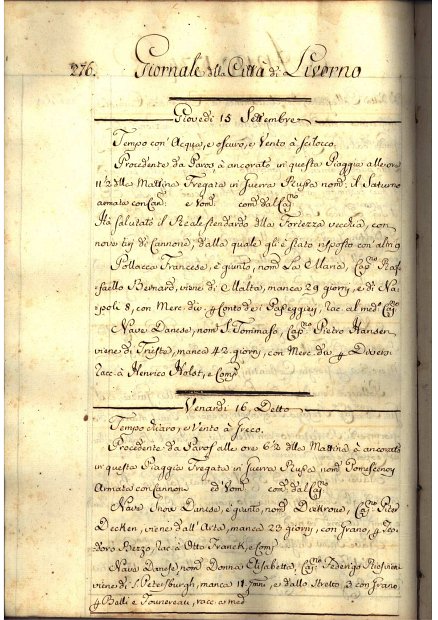 276. Giornale dlla Città di Livorno
Giovedi 15 Settembre
Tempo con Acqua, e oscuro, e Vento à Scilocco.
Procedente da Paros à ancorato in questa Piaggia alle ore
11½ dlla Mattina Fregata in Guerra Russa nom: il Saturno
armata con Can: e Vom: com: dal Capno
Há salutato il Reale stendardo dlla Fortezza vecchia, con
nove tiri di Cannone, dalla quale gli è stato risposto con alm 9
Pollacca Francese, è giunto, nom: La Maria, Capno Raf-
faello Bernard, viene di Malta, manca 29 giorni, e di Na-
poli 8, con Merc: div: p Conto de i Passeggieri, rac: al med: Cap:
Nave Danese, nom: S. Tommaso, Capno Pietro Hansen
viene di Trieste, manca 42 giorni, con Merc: div: p Diversi
racc: à Henrico Holst, e Comp
Venardi 16, Detto
Tempo chiaro, e Vento à Greco.
Procedente da Paros alle ore 6½ dlla Mattina à ancorato
in questa Piaggia Fregata in Guerra Russa nom:
Armata con Cannone ed Vom: com: dal Cap:
Nave Danese, è giunto, nom: Capno Piter
Decken, viene dall' Arta, manca 23 giorni, con Grano, p Teo-
doro Rizzo, rac: à Otto Franck, e Comp
Nave Danese, nom: Donna Elisabetta, Cap: Federigo
viene di S. Petersburgh, manca 11 e dallo Stretto 3 con Grano
p Balli e racc: a med: